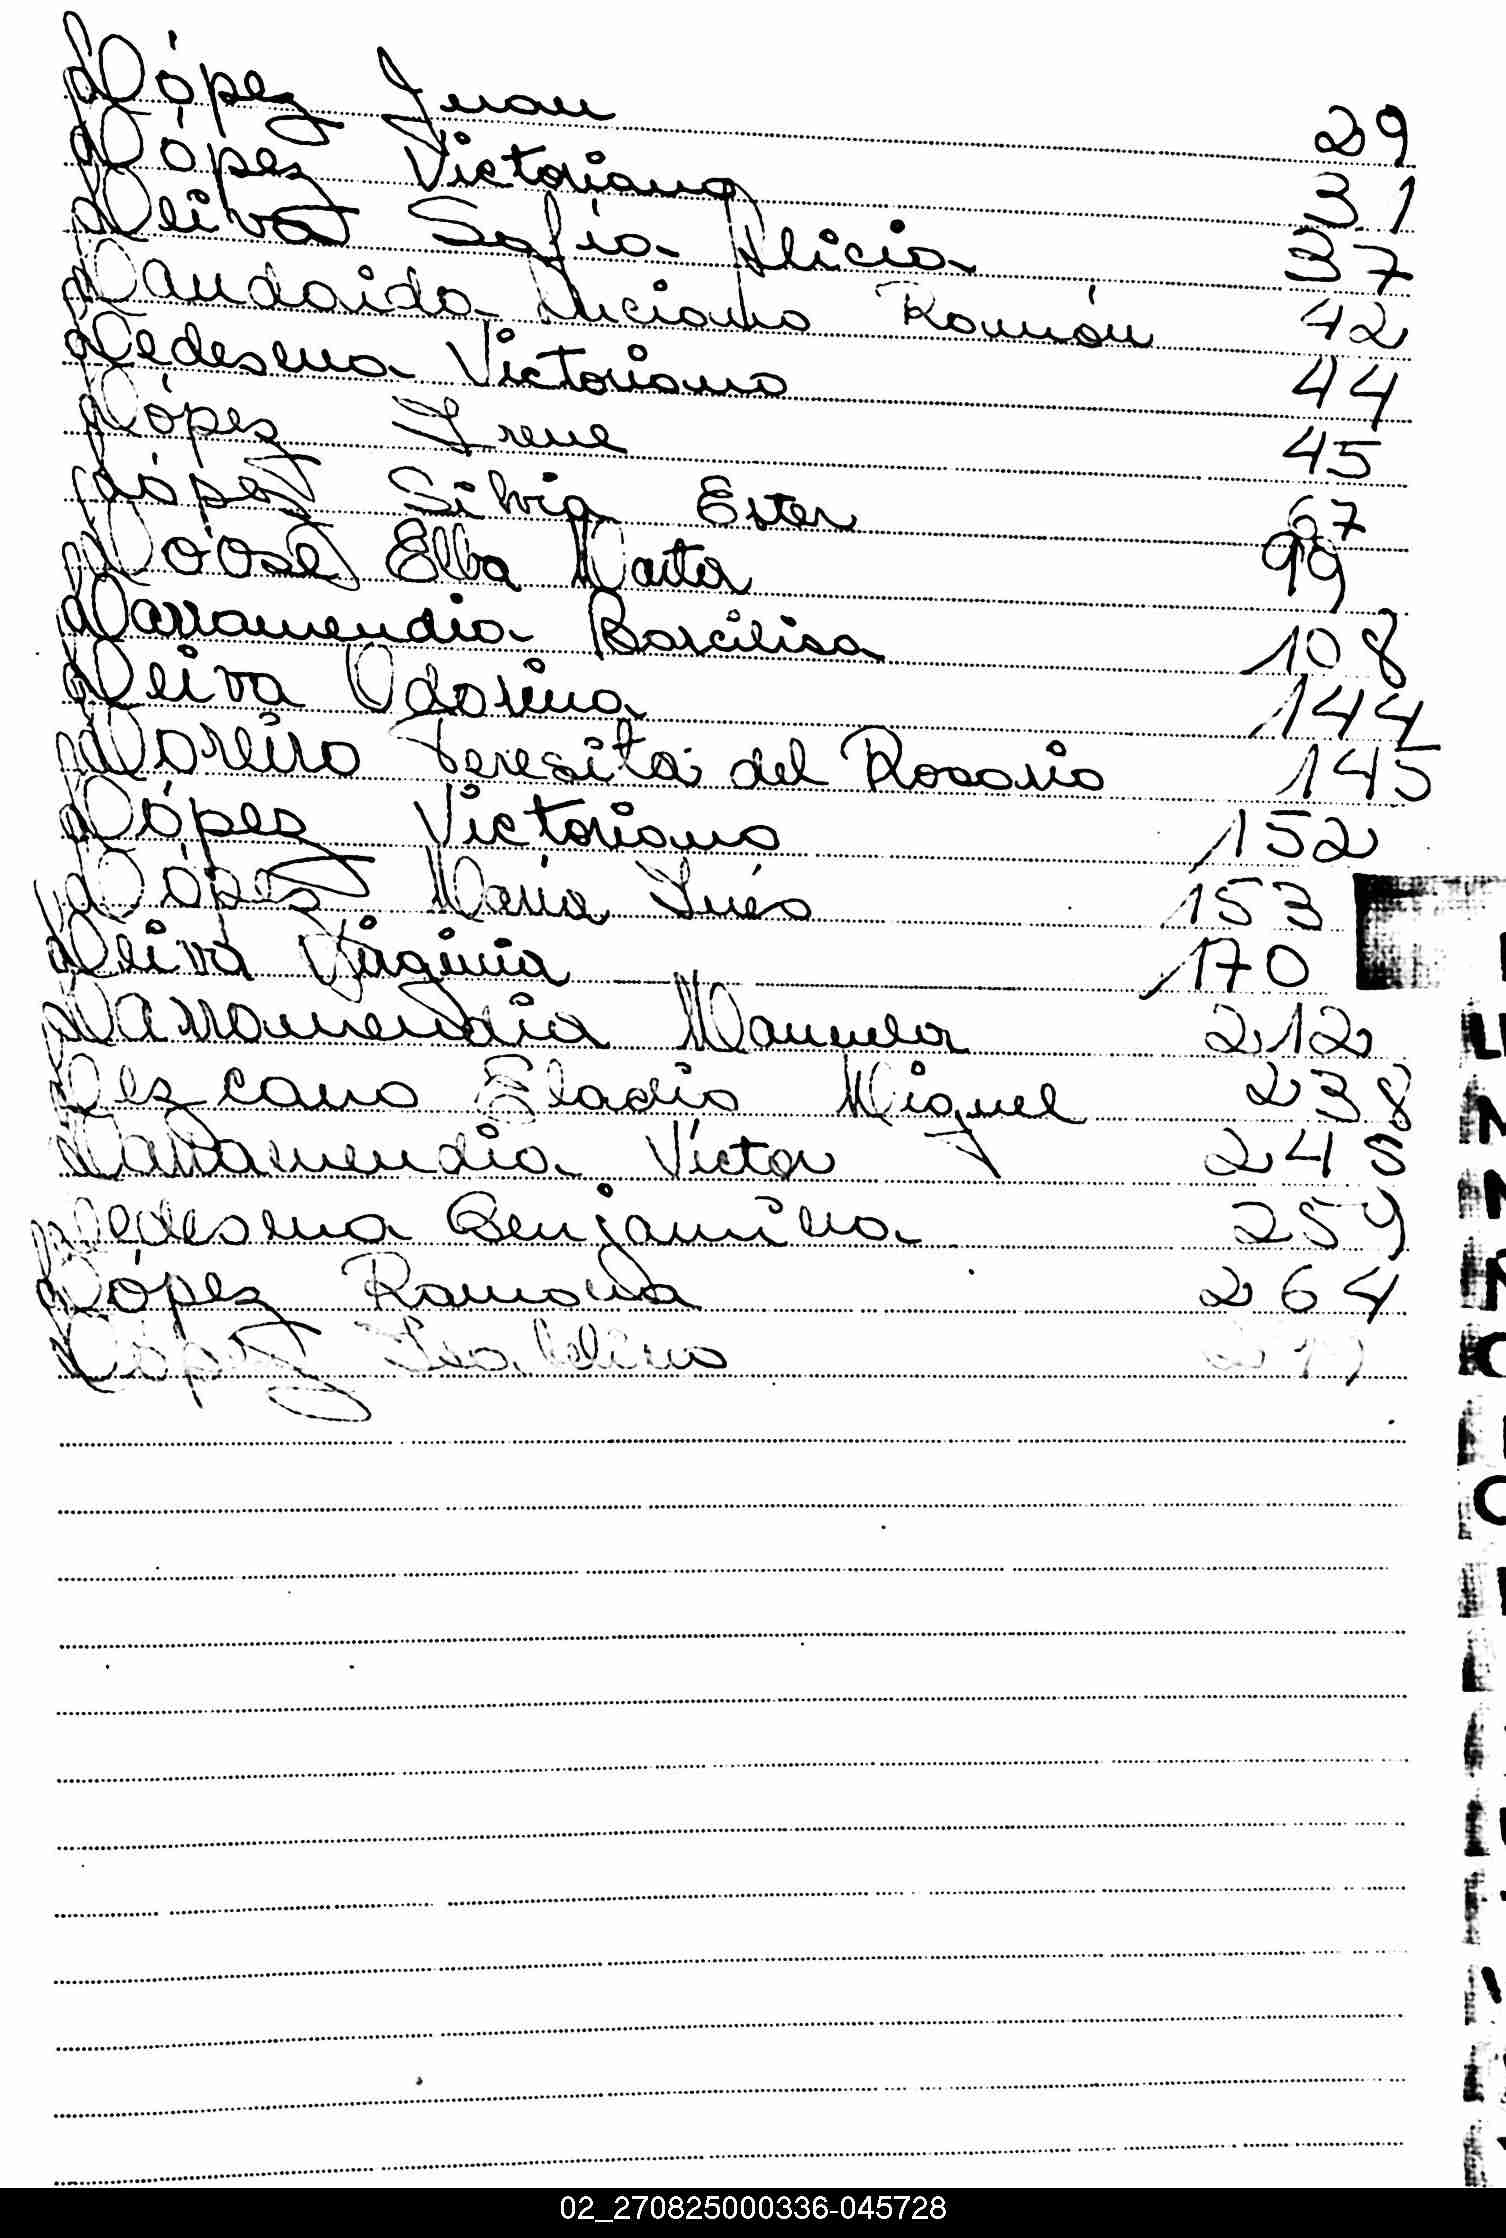 López Juan 29
López Victoriano 31
Leiva Sofía Alicia 37
Landaida Luciano Ramón 42
Ledesma Victoriano 44
López Irene 45
López Silvia Ester 67
Loose Elba Marta 99
Larramendia Barcilisa 108
Leiva Odorina 144
Loreiro Teresita del Rosario 145
López Victoriano 152
López María Inés 153
Leiva Virginia 170
Larramendia Manuela 212
Lezcano Eladio Miguel 238
Larramendia Víctor 245
Ledesma Benjamina 259
López Ramona 264
López
02_270825000336-045728